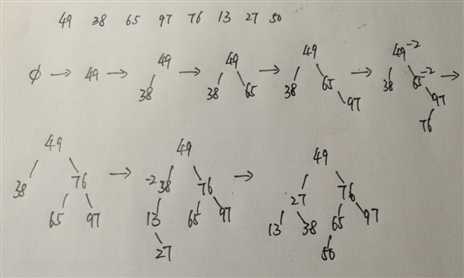 49 38 65 97 76 13 27 50
φ → 49 → 49 → 49 → 49 → 49-2 →
38 38 65 38 65 38 65-2
97 97
76
49 → 49 → 49
38 76 -2 38 76 27 76
65 97 13 65 97 13 38 65 97
27 50